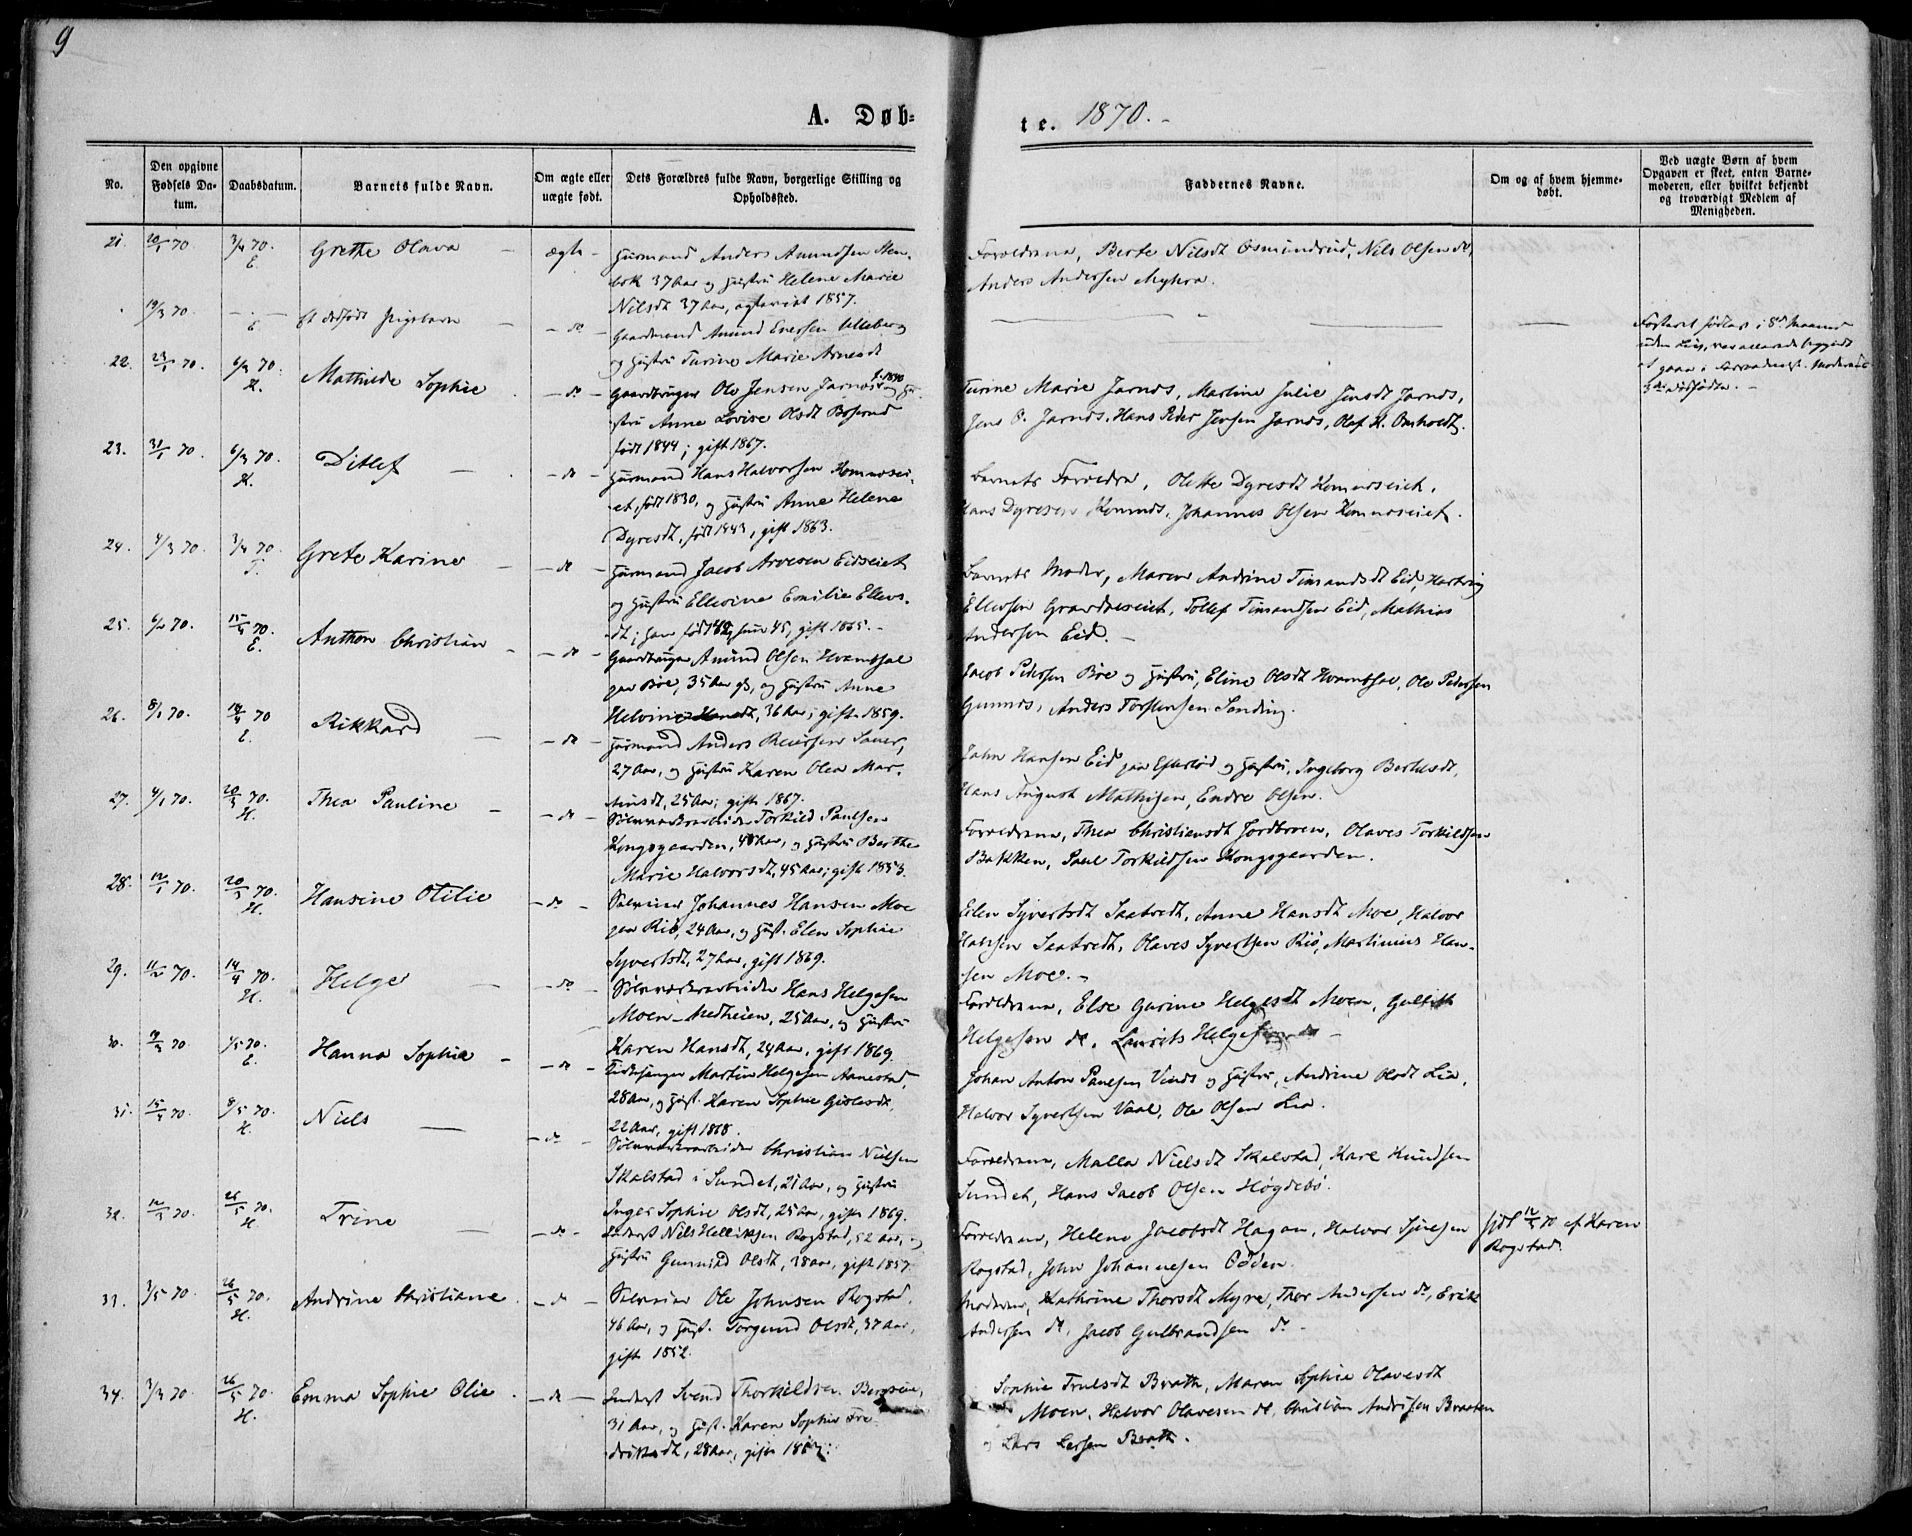 9
A. Døb-
te. 1870.-
No.
Den opgivne
Fødsels Da-
tum.
Daabsdatum.
Barnets fulde Navn.
Om ægte eller
uægte født.
Dets Forældres fulde Navn, borgerlige Stilling og
Opholdssted.
Faddernes Navne.
Om og af hvem hjemme-
døbt.
Ved uægte Børn af hvem
Opgaven er skeet, enten Barne-
moderen, eller hvilket bekjendt
og troværdigt Medlem af
Menigheden.
21. 20/1 70. 3/4 70. E. Grethe Olava - ægte -
Huusmand Anders Amundsen
37 Aar og Hustru Helene Marie
Nilsdt 37 Aar, 1857.
Forældrene, Berte Nilsdt Osmundrud, Nils Olsen do,
Anders Andersen Myhra.
19/3 70. - E. et dødfødt Pigebarn - - do -
Gaardmand Amund Eversen Ulleberg
og Hustru Turine Marie Arnesdt
Fosteret fødtes i 8de Maaned
uden Liv,
22. 23/1 70. 6/3 70. H. Mathilde Sophie - do -
Gaardbruger Ole Jensen Jarnæs f. 1840 og Hu-
stru Anne Lovise Olsdt
født 1844; gift 1867.
Turine Marie Jarnds, Martine Julie Jensdt Jarnds,
Jens O. Jarnds, Hans Peder Jensen Jarnds, Olaf K. Omholdt.
23. 31/1 70. 6/3 70. H. Ditlef - - do -
Huusmand Hans Halvorsen Komnæsei-
et, født 1830, og Hustru Anne Helene
Dyresdt, født 1843, gift 1863.
Barnets Forældre, Olette Dyresdt Komnæseiet,
Hans Dyresen Komnds, Johannes Olsen Komnæseiet.
24. 4/3 70. 3/4 70. T. Grete Karine - - do -
Huusmand Jacob Arvesen Eidseiet
og Hustru Ellevine Emilie Ellevs-
dt; han født 42, hun 45, gift 1865.-
Barnets Moder, Maren Andrine Timandsdt Eid, Hartvig
Ellevsen Gravdaleiet, Tollef Timandsen Eid, Mathias
Andersen Eid. -
25. 6/2 70. 15/4 70. E. Anthon Christian - - do -
Gaardbruger Amund Olsen Hvambsal
paa Bøe, 35 Aar gl, og Hustru Anne
Helvine Hansdt, 36 Aar; gift 1859.
Jacob Pedersen Bøe og Hustru, Eline Olsdt Hvambsal, Ole Pedersen
Gunnds, Anders Torstensen Sonding.
26. 8/1 70. 18/4 70 E. Rikkard - - do -
Huusmand Anders
27 Aar, og Hustru Karen Olea Mar-
tinsdt, 25 Aar; gift 1867.
John Hansen Eid paa Eftelød og Hustru, Ingeborg Berthesdt,
Hans August Mathisen, Endre Olsen.
27. 4/1 70. 20/3 70. H. Thea Pauline - - do -
Sølvværksarbeider Torkild Paulsen
Kongsgaarden, 48 Aar, og Hustru Berthe
Marie Halvorsdt, 45 Aar; gift 1853.
Forældrene, Thea Christiansdt Jordbroen, Olaves Torkildsen
Bakken, Paul Torkildsen Kongsgaarden.
28. 12/1 70. 20/3 70. H. Hansine Otilie - do -
Johannes Hansen Moe
paa Riø, 24 Aar, og Hust. Elen Sophie
Syvertsdt, 27 Aar, gift 1869.
Elen Syvertsdt Saatvedt, Anne Hansdt Moe, Halvor
Hansen Saatvedt, Olaves Syvertsen Riø, Martinius Han-
sen Moe. -
29. 11/2 70. 14/4 70. H. Helge - - do -
Sølvværksarbeider Hans Helgesen
Moen - Medheien, 25 Aar, og Hustru
Karen Hansdt, 24 Aar, gift 1869.
Forældrene, Else Gurine Helgesdt Moen, Gullik
Helgesen do, Laurits Helgesen do -
30. 19/3 70 1/5 70. E. Hanna Sophie - - do -
Kirkesanger Martin Helgesen Aanestad,
28 Aar, og Hust. Karen Sophie Gislesdt,
22 Aar, gift 1868.
Johan Anton Paulsen Vinds og Hustru, Andrine Olsdt Lia,
Halvor Syvertsen Vaal, Ole Olsen Lia.
31. 15/3 70. 8/5 70. H. Niels - - do -
Sølvværksarbeider Christian Nielsen
Skalstad i Sundet, 21 Aar, og Hustru
Inger Sophie Olsdt, 25 Aar, gift 1869.
Forældrene, Malla Nielsdt Skalstad, Karl Knudsen
Sundet, Hans Jacob Olsen Høgdebø.
32. 12/3 70. 26/5 70. H. Trine - - do -
Inderst Niels Helliksen Rogstad, 52 Aar, og
Hustru Gunnild Olsdt, 38 Aar, gift 1857.
Forældrene, Helene Jacobsdt Hagan, Halvor Sjulsen
Rogstad, John Johannesen Odden.
hjdt 12/3 70 af Karen
Rogstad.
33. 3/5 70. 26/5 70. H. Andrine Christiane. - do -
Ole Johnsen Rogstad,
46 Aar, og Hust. Torgund Olsdt, 37 Aar,
gift 1852.
Moderen, Kathrine Thorsdt Myre, Thor Andersen do, Erik
Andersen do, Jacob Gulbrandsen do -
34. 3/3 70. 26/5 70. H. Emma Sophie Olie. - do -
Inderst Svend Thorkildsen
31 Aar, og Hust. Karen Sophie Fre-
driksdt, 28 Aar, gift
Sophie Trulsdt Brath, Maren Sophie Olavesdt
Moen, Halvor Olavesen do, Christian Andersen Braaten
og Lars Larsen Brath.